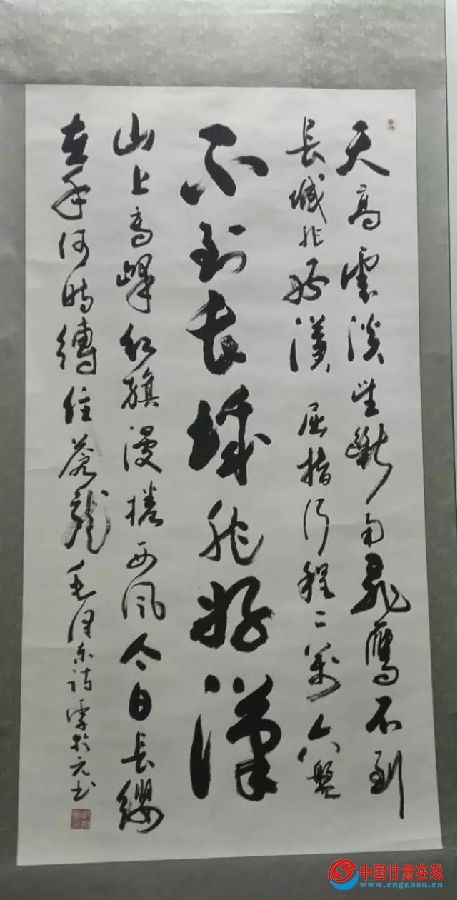 天高雲淡望斷南飛雁不到
長城非好漢屈指行程二萬六盤
不到長城非好漢
山上高峰紅旗漫捲西風今日長纓
在手何時縛住蒼龍毛澤東詩書
中国甘肃在线
www.cngansu.cn